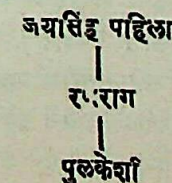 जयासिंह पहिला
रणराग
पुलकेशी